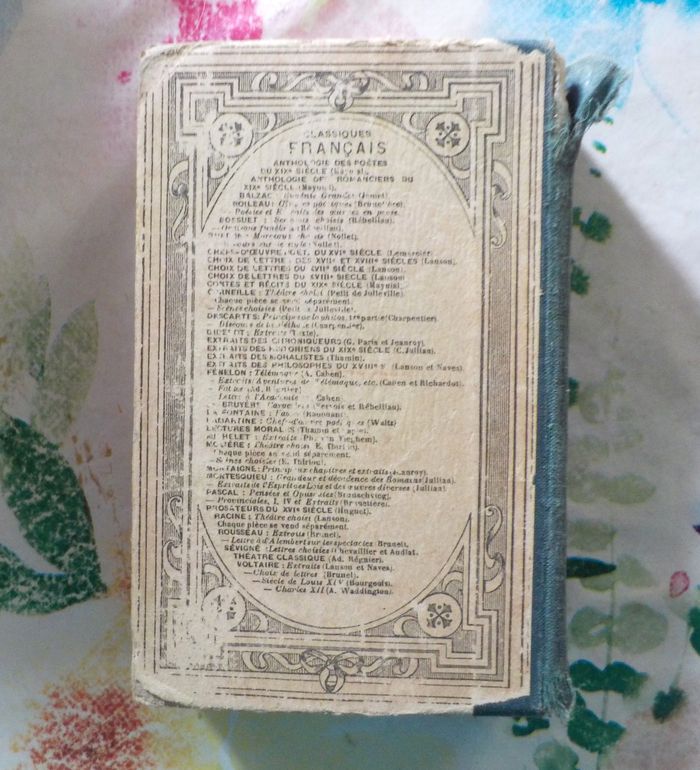 CLASSIQUES
FRANÇAIS
ANTHOLOGIE DES POÈTES
DU XIXe SIÈCLE
ANTHOLOGIE ROMANCIERS DU
XIXe SIÈCLE (Maynial).
BALZAC : Grandet
BOILEAU :
— Poésies et
BOSSUET : choisis (Rébelliau).
— (Rébelliau).
Morceaux choisis (Nollet).
sur le style (Nollet).
DU XVIe SIÈCLE (Lemercier)
CHOIX DE LETTRES DES XVIIe ET XVIIIe SIÈCLES (Lanson).
CHOIX DE LETTRES DU XVIIe SIÈCLE (Lanson).
CHOIX DE LETTRES DU XVIIIe SIÈCLE (Lanson)
CONTES ET RÉCITS DU XIXe SIÈCLE (Maynial).
CORNEILLE : Théâtre choisi (Petit de Julleville).
Chaque pièce se vend séparément.
— Scènes choisies (Petit de Julleville).
DESCARTES : Principes de la philos., 1re partie (Charpentier).
— Discours de la Méthode (Charpentier).
DIDEROT : Extraits (Texte).
EXTRAITS DES CHRONIQUEURS (G. Paris et Jeanroy).
EXTRAITS DES HISTORIENS DU XIXe SIÈCLE (C. Jullian).
EXTRAITS DES MORALISTES (Thamin).
EXTRAITS DES PHILOSOPHES DU XVIIIe S. (Lanson et Naves)
FÉNELON : Télémaque (A. Cahen).
— Extraits Aventures de Télémaque, etc. (Cahen et Richardot).
— Fables (Ad. Régnier).
— Lettre à l'Académie Cahen
LA BRUYÈRE : (Servois et Rébelliau).
LA FONTAINE : Fables
LAMARTINE : Chefs-d'œuvre poétiques (Waltz)
LECTURES MORALES (Thamin et
MICHELET : Extraits (Ph. van Tieghem).
MOLIÈRE : Théâtre choisi (E. Thirion).
Chaque pièce se vend séparément.
— Scènes choisies (E. Thirion).
MONTAIGNE : Principaux chapitres et extraits (Jeanroy).
MONTESQUIEU : Grandeur et décadence des Romains (Jullian).
— Extraits de l'Esprit des Lois et des œuvres diverses (Jullian).
PASCAL : Pensées et Opuscules (Brunschvicg).
— Provinciales, I, IV et Extraits (Brunetière).
PROSATEURS DU XVIe SIÈCLE (Huguet).
RACINE : Théâtre choisi (Lanson).
Chaque pièce se vend séparément.
ROUSSEAU : Extraits (Brunel).
— Lettre à d'Alembert sur les spectacles Brunel.
SÉVIGNÉ : Lettres choisies et Audiat.
THÉÂTRE CLASSIQUE (Ad. Régnier).
VOLTAIRE : Extraits (Lanson et Naves).
— Choix de lettres (Brunel).
— Siècle de Louis XIV (Bourgeois).
— Charles XII (A. Waddington).